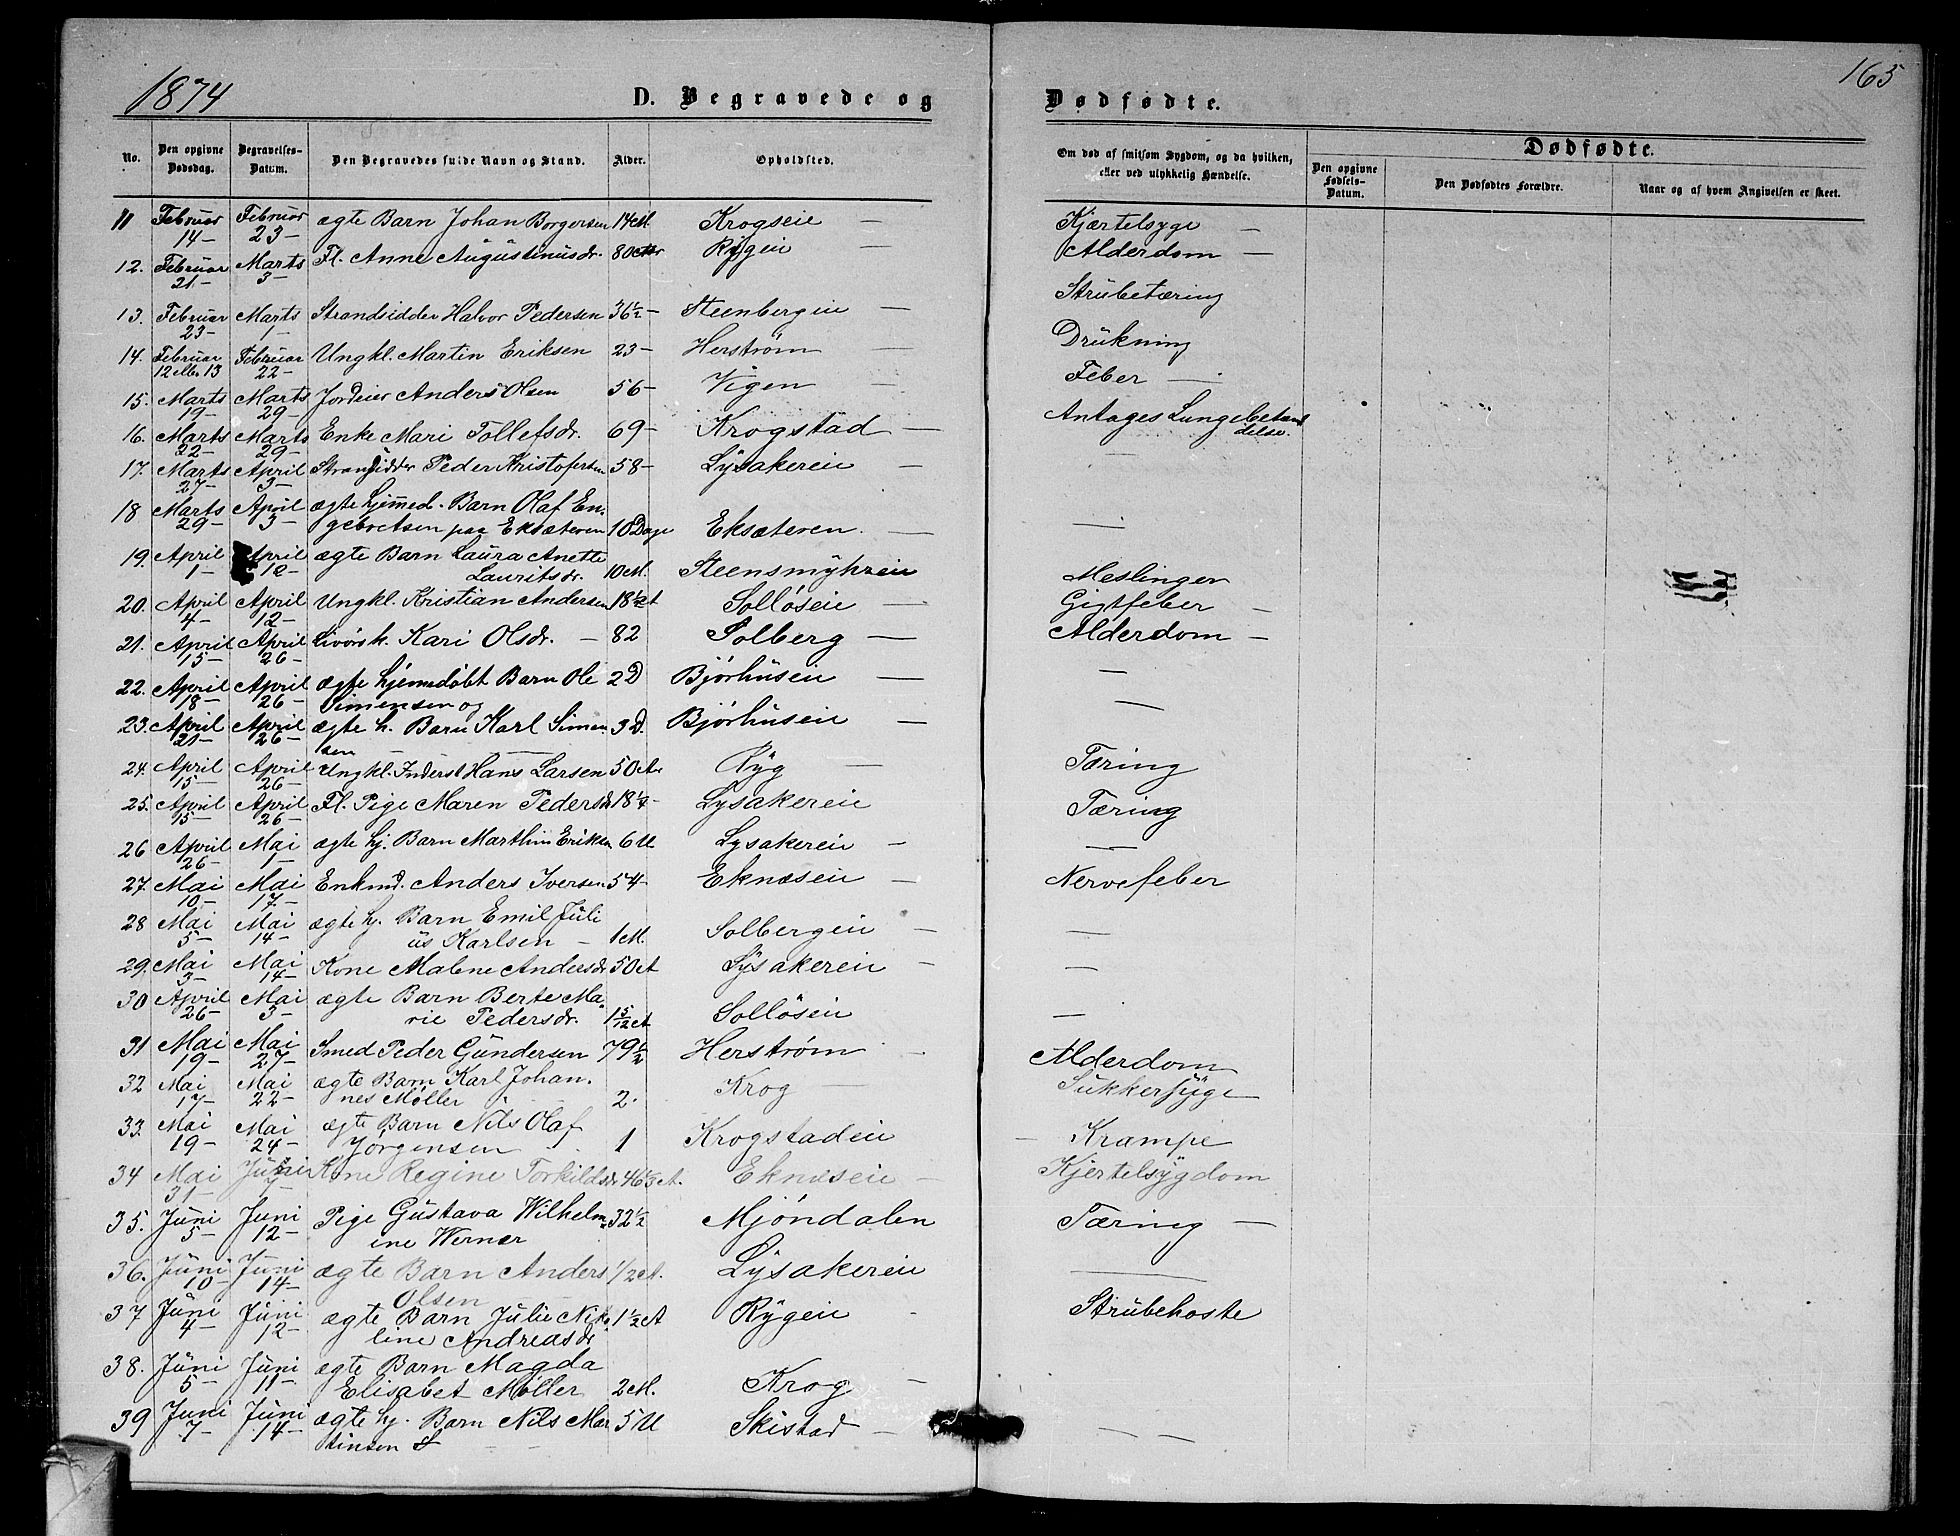 1874 D. Begravede og Dødfødte. 165
No. Den opgivne Dødsdag. Begravelses-Datum. Den Begravedes fulde Navn og Stand. Alder. Opholdsted. Om død af smitsom Sygdom, og da hvilken, eller ved ulykkelig Hændelse. Dødfødte. Den opgivne Fødsels-Datum. Den Dødfødtes Forældre. Naar og af hvem Angivelsen er skeet.
11 Februar Februar ægte Barn Johan Borgersen 14 M. Krogseie — Kjærtelsyge —
14 — 23 —
12. Februar Marts Fl. Anne Augustinusdr. 80 Rygeie — Alderdom —
21 — 3 —
13. Februar Marts Strandsidder Halvor Pedersen 36½ — Steenbergeie — Strubetæring
23 — 1 —
14. Februar Februar Ungkl. Martin Eriksen 23 — Herstrøm — Drukning
12 ell. 13 22 —
15. Marts Marts Jordeier Anders Olsen 56 — Vigen — Feber —
19 — 29 —
16. Marts Marts Enke Mari Tollefsdr. 69 — Krogstad — Antages Lungebetændelse.
22 — 29 —
17. Marts April Strandsidder Peder Kristofersen 58 — Lysakereie — —
27 — 3 —
18 Marts April ægte hjemmed. Barn Olaf En-
29 — 3 — gebretsen paa Eksæteren 10 Dage Eksæteren. — —
19. April April ægte Barn Laura Anette
1 — 12 — Lauritsdr. 10 M. Steensmyhreie Meslinger
20. April April Ungkl. Kristian Andersen 18½ A Solløseie — Gigtfeber —
4 — 12 —
21. April April Livørsk. Kari Olsdr. — 82 Solberg — Alderdom —
15 — 26 —
22. April April ægte hjemmedøbt Barn Ole 2 D Bjørhuseie — —
18 — 26 — Simensen og
23. April April ægte h. Barn Karl Simen 3 D. Bjørhuseie — —
21 — 26 — sen
24. April April Ungkl. Inderst Hans Larsen 50 A. Ryg — Tæring
15 — 26 —
25. April April Fl. Pige Maren Pedersdr 18¼ — Lysakereie Tæring
15 — 26 —
26 April Mai ægte hj. Barn Marthin Eriksen 6 U Lysakereie — —
26 — 1 —
27. Mai Mai Enkmd. Anders Iversen 54 — Eknæseie — Nervefeber
10 — 17 —
28 Mai Mai ægte hj. Barn Emil Juli
5 — 14 — us Karlsen — 1 M. Solbergeie — —
29. Mai Mai Kone Malene Andersdr 50 A Lysakereie — —
3 — 14 —
30 April Mai ægte Barn Berte Ma
26 — 3 — rie Pedersdr. 1 5/12 A Solløseie —
31 Mai Mai Smed Peder Gundersen 79½ Herstrøm — Alderdom
19 — 27 —
32 Mai Mai ægte Barn Karl Johan.
17 — 22 — nes Møller 2. Krog Sukkersyge
33. Mai Mai ægte Barn Nils Olaf
19 — 24 — Jörgensen 1 Krogstadeie — Krampe
34 Mai Juni Kone Regine Torkildsdr 46⅓ A. Eknæseie — Kjertelsygdom
31 — 7 —
35. Juni Juni Pige Gustava Wilhelm 32½ Mjöndalen Tæring —
5 — 12 — ine Werner
36. Juni Juni ægte Barn Anders 1/2 A. Lysakereie —
10 — 14 — Olsen
37 Juni Juni ægte Barn Julie Niko 1½ A Rygeie — Strubehoste
4 — 12 — line Andreasdr
38. Juni Juni ægte Barn Magda
5 — 11 — Elisabet Møller 2 M. Krog —
39 Juni Juni ægte hj. Barn Nils Mar 5 U Skistad — — —
7 — 14 — tinsen